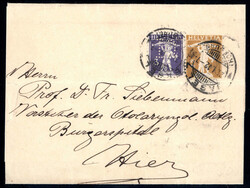 HELVETIA
Herrn
Prof. Dr. Fr. Siebenmann
Vorsteher der Otolaryngol. Abtlg.
Burgerspital
Hier